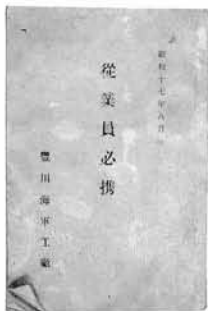 昭和十七年八月
從業員必携
豐川海軍工廠